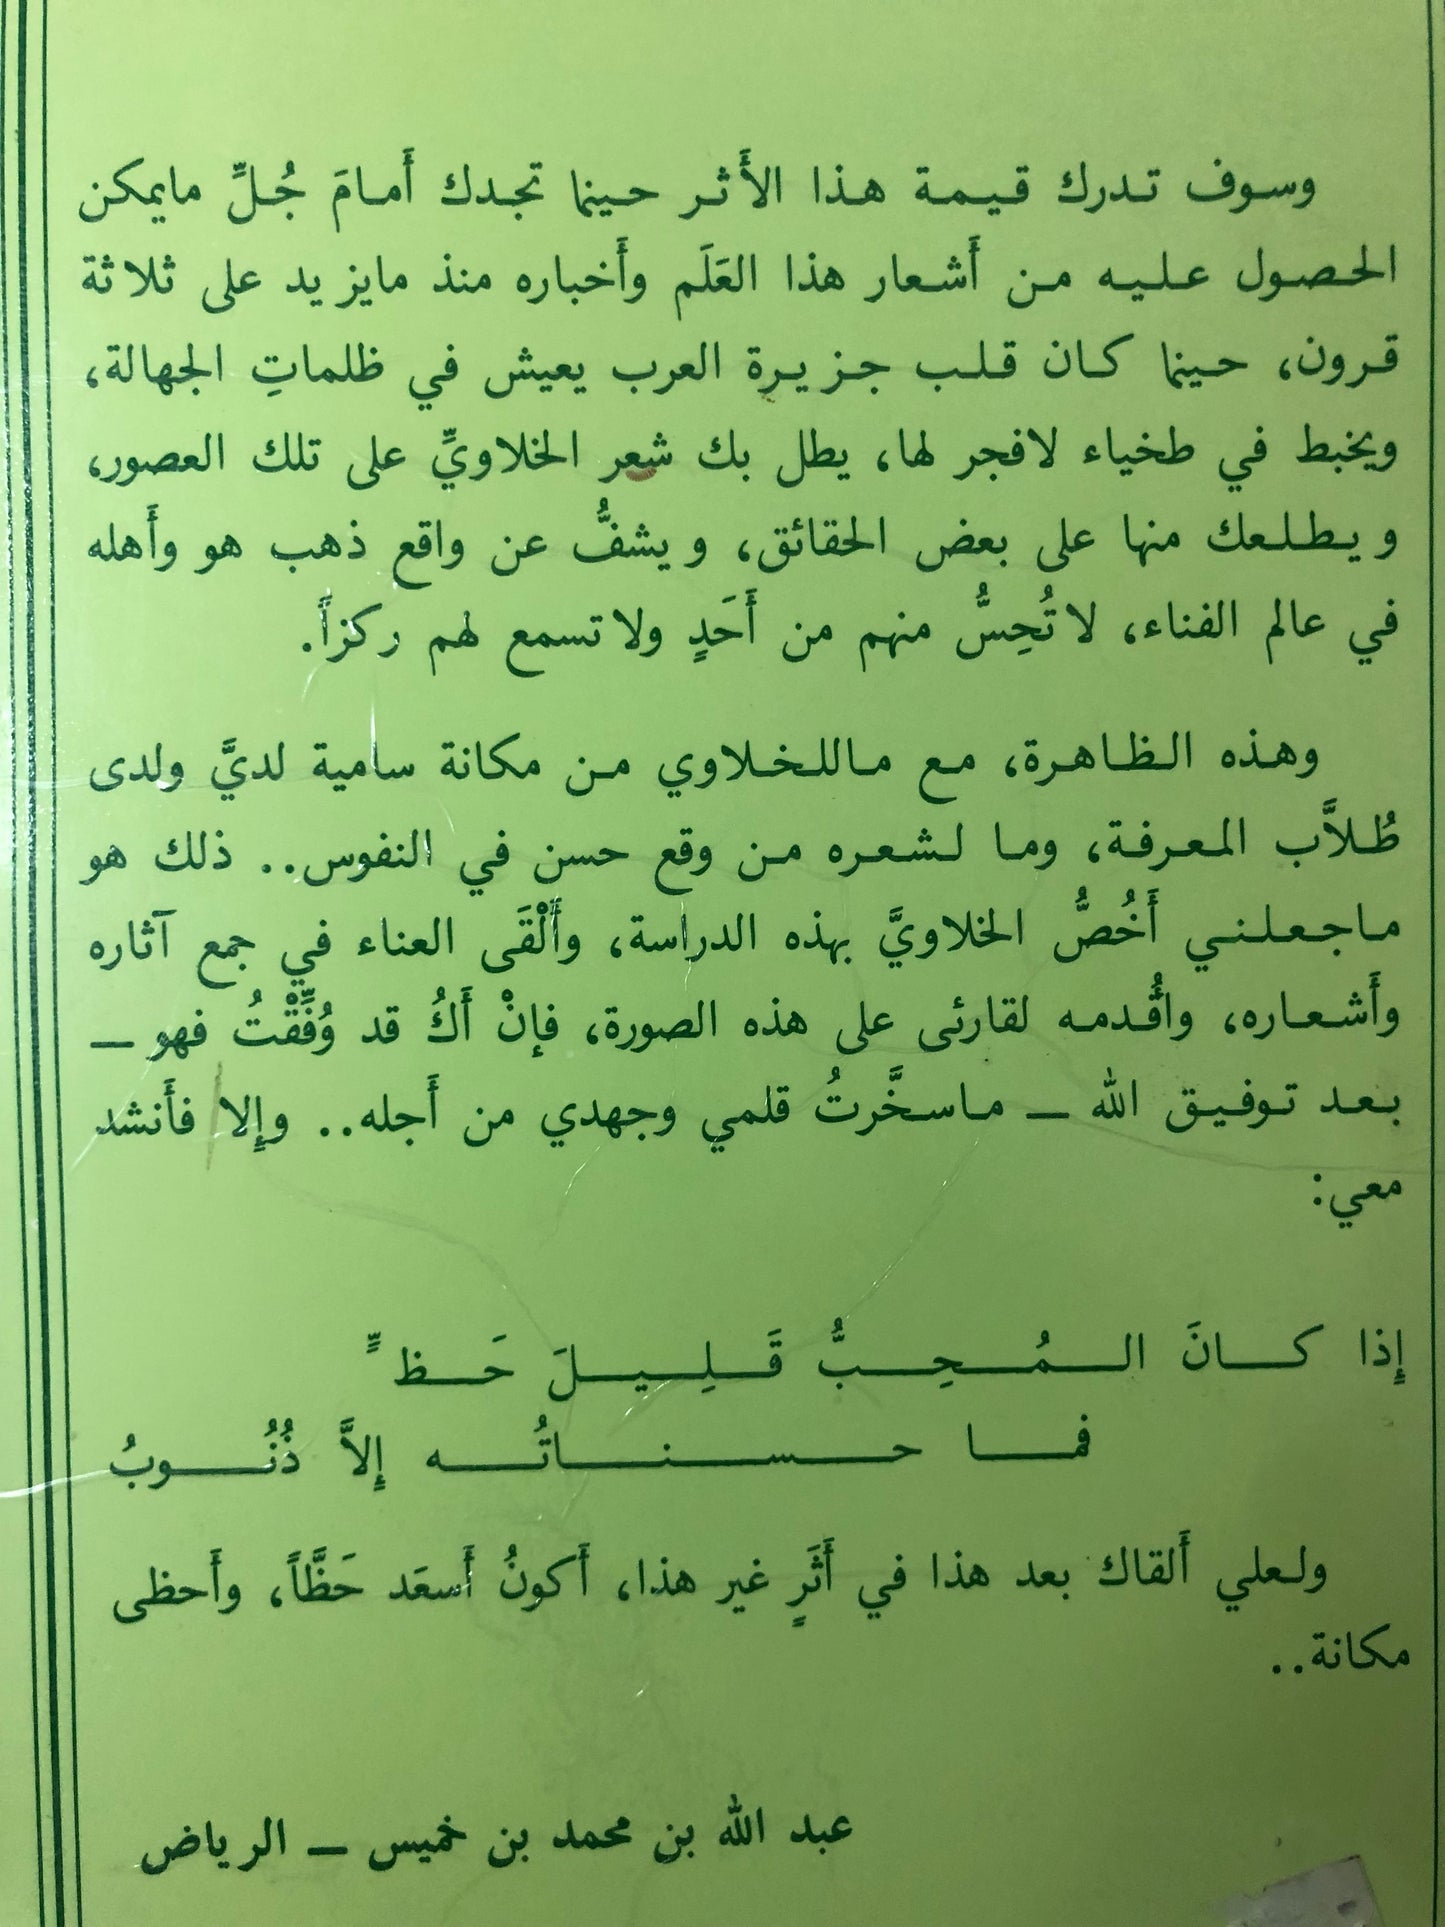 وسوف تدرك قيمة هذا الأَثر حينما تجدك أَمامَ جُلِّ مايمكن
الحصول عليه من أَشعار هذا العَلَم وأَخباره منذ مايزيد على ثلاثة
قرون، حينما كان قلب جزيرة العرب يعيش في ظلماتِ الجهالة،
ويخبط في طخياء لافجر لها، يطل بك شعر الخلاويِّ على تلك العصور،
ويطلعك منها على بعض الحقائق، ويشفُّ عن واقع ذهب هو وأَهله
في عالم الفناء، لاتُحِسُّ منهم من أَحَدٍ ولاتسمع لهم ركزاً.
وهذه الظاهرة، مع ماللخلاوي من مكانة سامية لديَّ ولدى
طُلاَّب المعرفة، وما لشعره من وقع حسن في النفوس.. ذلك هو
ماجعلني أَخُصُّ الخلاويَّ بهذه الدراسة، وأَلْقَى العناء في جمع آثاره
وأَشعاره، واُقُدمه لقارئى على هذه الصورة، فإنْ أَكُ قد وُفِّقْتُ فهو —
بعد توفيق الله — ماسخَّرتُ قلمي وجهدي من أَجله.. وإِلا فأَنشد
معي:
إِذا كانَ المُحِبُّ قَلِيلَ حَظٍّ
فما حسناتُه إِلاَّ ذُنُوبُ
ولعلي أَلقاك بعد هذا في أَثَرٍ غير هذا، أَكونُ أَسعَد حَظَّاً، وأَحظى
مكانة..
عبد الله بن محمد بن خميس — الرياض